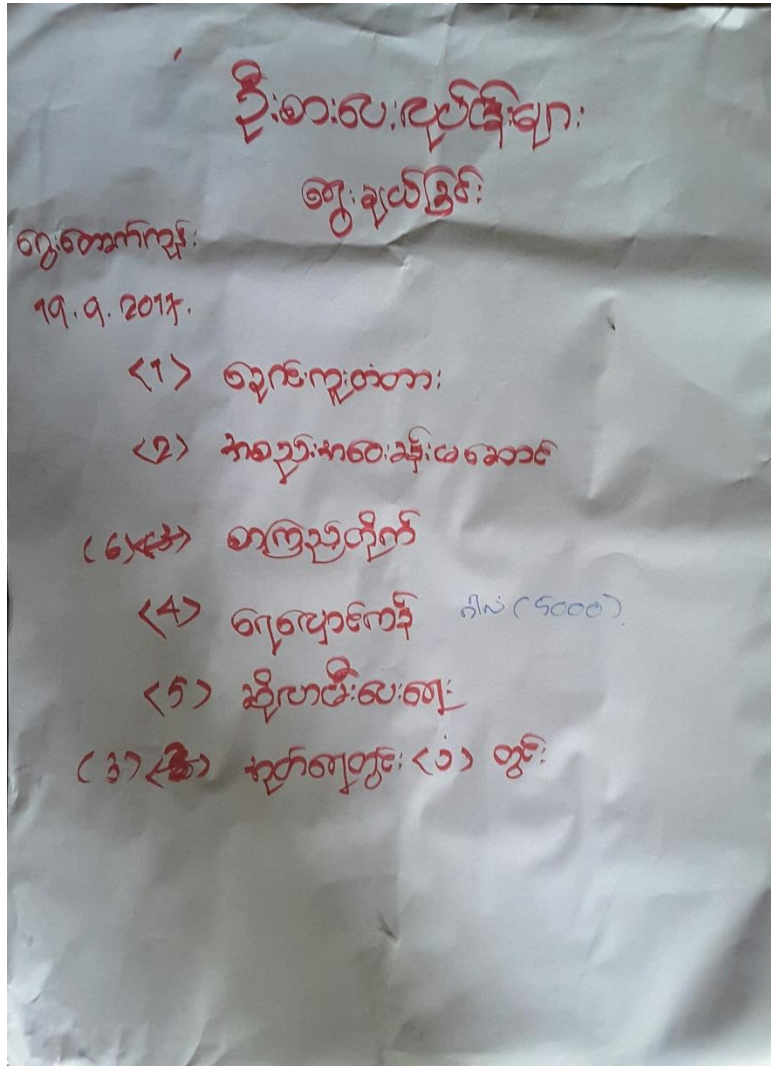 ဦးစားပေးလုပ်ငန်းများ
ရွေးချယ်ခြင်း
ကွေးတောက်ကုန်း
19.9.2017.
<1> ချောင်းကူးတံတား
<2> အစည်းအဝေးခန်းမဆောင်
(6) <3> စာကြည့်တိုက်
<4> ရေလှောင်ကန် ဂါလံ (5000)
<5> ဆိုလာမီးပေးရေး
(3) အုတ်ရေတွင်း <၁> တွင်း